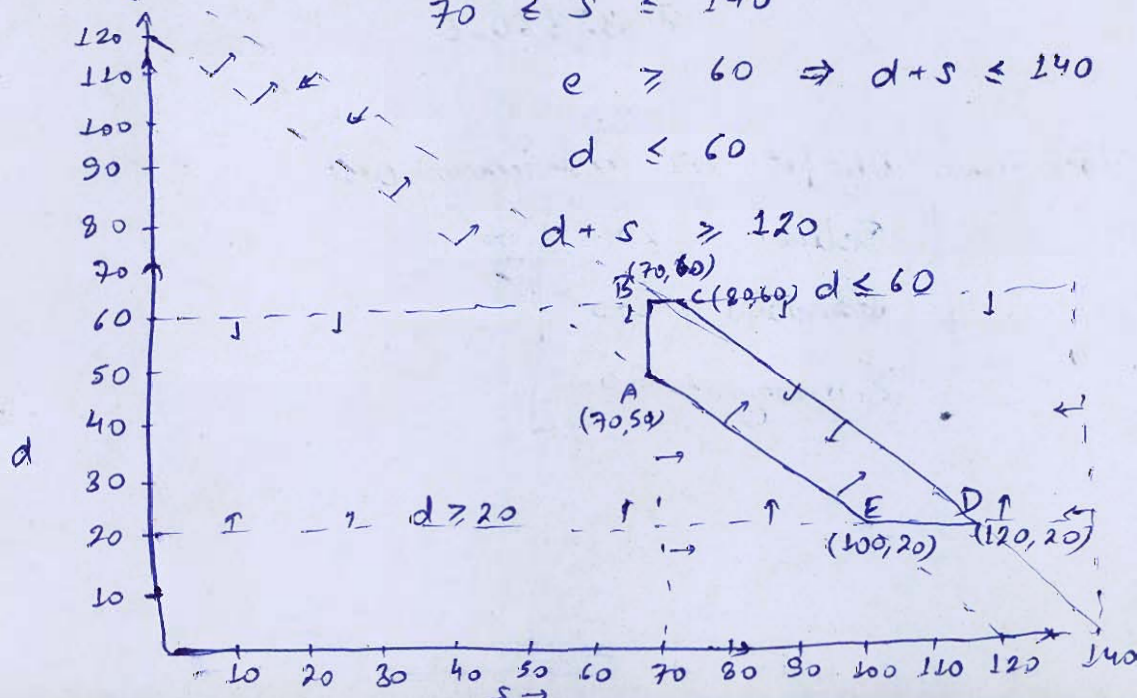 70 ≤ s ≤ 140
e ≥ 60 ⇒ d+s ≤ 140
d ≤ 60
d + s ≥ 120
120
110
100
90
80
70
60
50
40
30
20
10
d
B (70,60)
C (80,60) d ≤ 60
A
(70,50)
d ≥ 20
E
(100,20)
D
(120,20)
10 20 30 40 50 60 70 80 90 100 110 120 140
s →